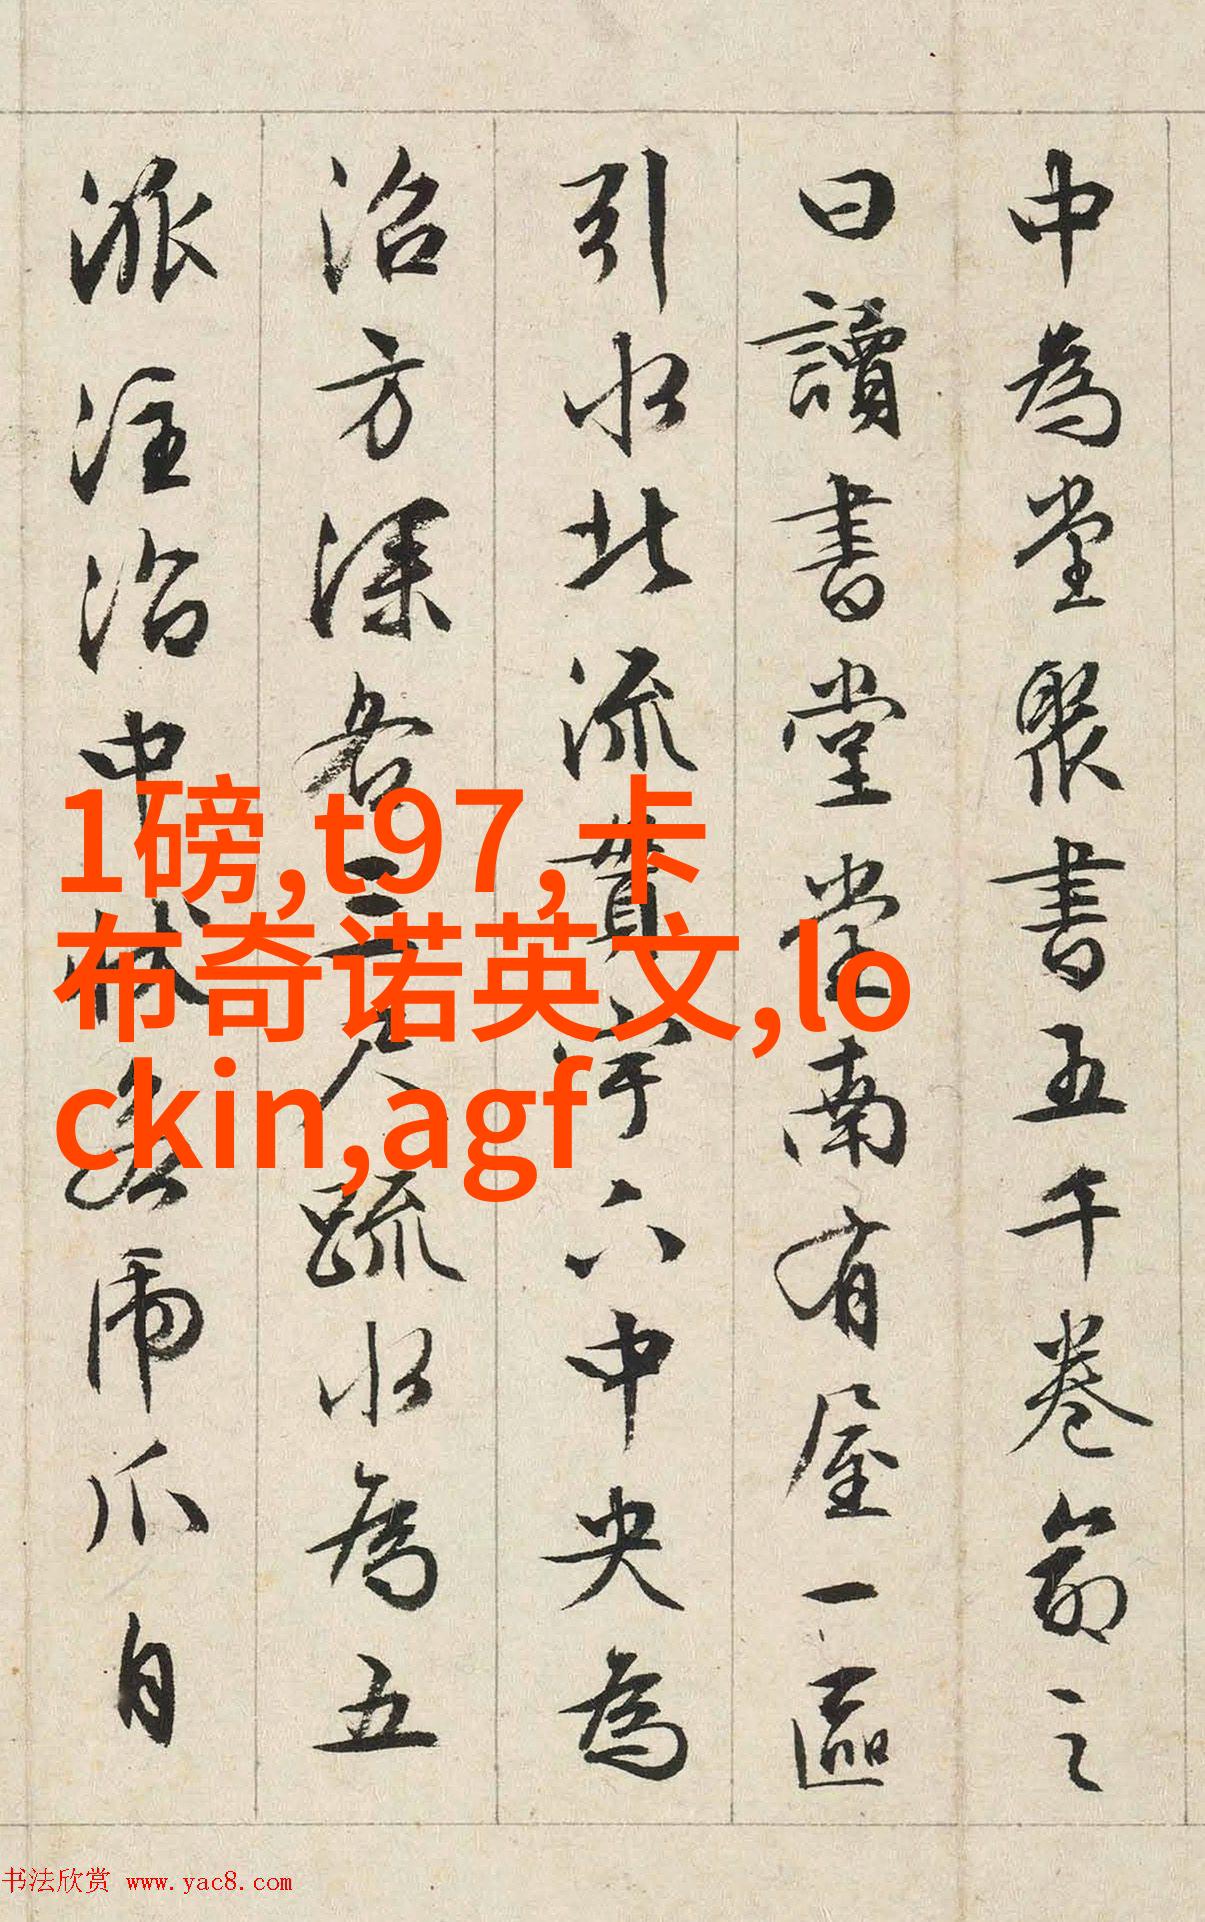 中為堂聚書五千卷命之
曰讀書堂堂南有屋一區
引水北流貫宇下中央為
沼方深各三尺疏水為五
派注沼中狀若虎爪自
1磅,t97,卡
布奇诺英文,lo
ckin,agf
书法欣赏 www.yac8.com